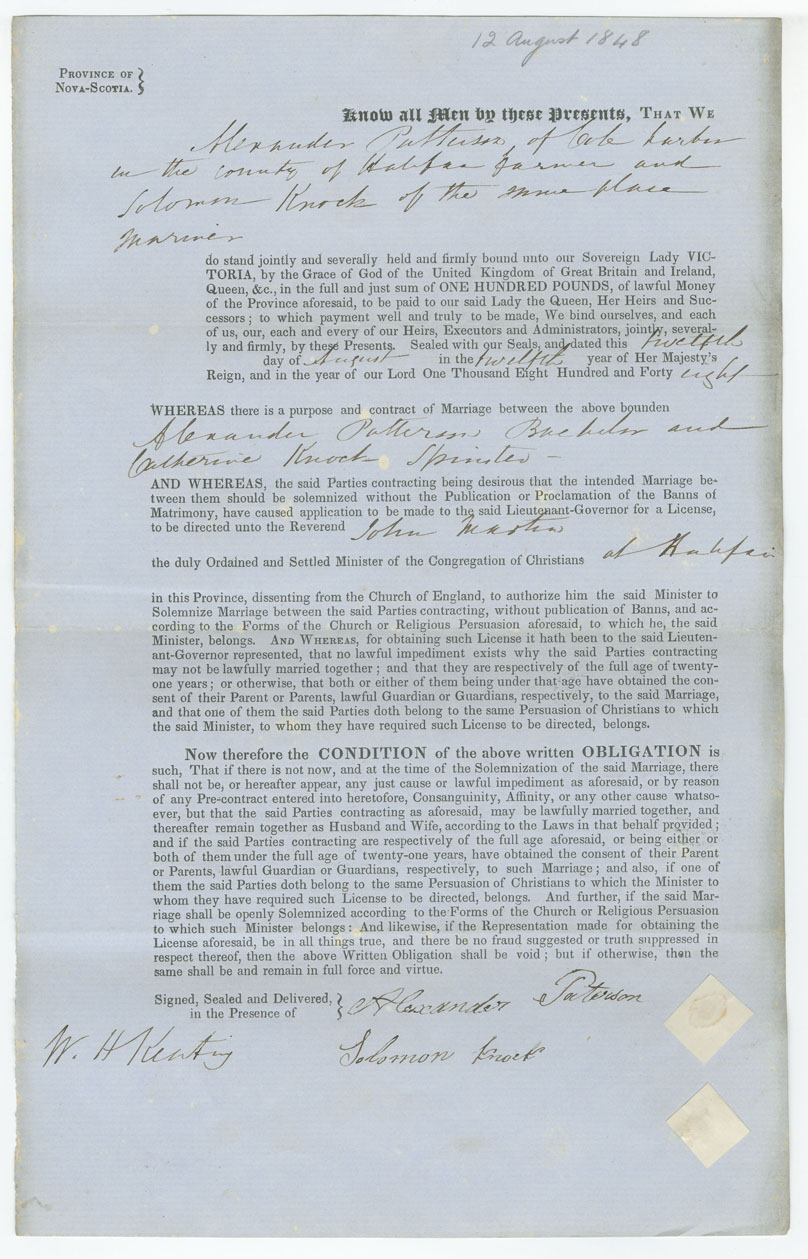 12 August 1848
PROVINCE OF
NOVA-SCOTIA.
Know all Men by these Presents, THAT WE
Alexander Patterson, of Cole harbor
in the county of Halifax farmer and
Solomon Knock of the same place
mariner
do stand jointly and severally held and firmly bound unto our Sovereign Lady VIC-
TORIA, by the Grace of God of the United Kingdom of Great Britain and Ireland,
Queen, &c., in the full and just sum of ONE HUNDRED POUNDS, of lawful Money
of the Province aforesaid, to be paid to our said Lady the Queen, Her Heirs and Suc-
cessors; to which payment well and truly to be made, We bind ourselves, and each
of us, our, each and every of our Heirs, Executors and Administrators, jointly, several-
ly and firmly, by these Presents. Sealed with our Seals, and dated this twelfth
day of August in the twelfth year of Her Majesty's
Reign, and in the year of our Lord One Thousand Eight Hundred and Forty eight
WHEREAS there is a purpose and contract of Marriage between the above bounden
Alexander Patterson Bachelor and
Catherine Knock Spinster –
AND WHEREAS, the said Parties contracting being desirous that the intended Marriage be-
tween them should be solemnized without the Publication or Proclamation of the Banns of
Matrimony, have caused application to be made to the said Lieutenant-Governor for a License,
to be directed unto the Reverend John Martin
the duly Ordained and Settled Minister of the Congregation of Christians at Halifax
in this Province, dissenting from the Church of England, to authorize him the said Minister to
Solemnize Marriage between the said Parties contracting, without publication of Banns, and ac-
cording to the Forms of the Church or Religious Persuasion aforesaid, to which he, the said
Minister, belongs. AND WHEREAS, for obtaining such License it hath been to the said Lieuten-
ant-Governor represented, that no lawful impediment exists why the said Parties contracting
may not be lawfully married together; and that they are respectively of the full age of twenty-
one years; or otherwise, that both or either of them being under that age have obtained the con-
sent of their Parent or Parents, lawful Guardian or Guardians, respectively, to the said Marriage,
and that one of them the said Parties doth belong to the same Persuasion of Christians to which
the said Minister, to whom they have required such License to be directed, belongs.
Now therefore the CONDITION of the above written OBLIGATION is
such, That if there is not now, and at the time of the Solemnization of the said Marriage, there
shall not be, or hereafter appear, any just cause or lawful impediment as aforesaid, or by reason
of any Pre-contract entered into heretofore, Consanguinity, Affinity, or any other cause whatso-
ever, but that the said Parties contracting as aforesaid, may be lawfully married together, and
thereafter remain together as Husband and Wife, according to the Laws in that behalf provided;
and if the said Parties contracting are respectively of the full age aforesaid, or being either or
both of them under the full age of twenty-one years, have obtained the consent of their Parent
or Parents, lawful Guardian or Guardians, respectively, to such Marriage; and also, if one of
them the said Parties doth belong to the same Persuasion of Christians to which the Minister to
whom they have required such License to be directed, belongs. And further, if the said Mar-
riage shall be openly Solemnized according to the Forms of the Church or Religious Persuasion
to which such Minister belongs: And likewise, if the Representation made for obtaining the
License aforesaid, be in all things true, and there be no fraud suggested or truth suppressed in
respect thereof, then the above Written Obligation shall be void; but if otherwise, then the
same shall be and remain in full force and virtue.
Signed, Sealed and Delivered,
in the Presence of
Alexander Paterson
W. H Keating
Solomon Knock